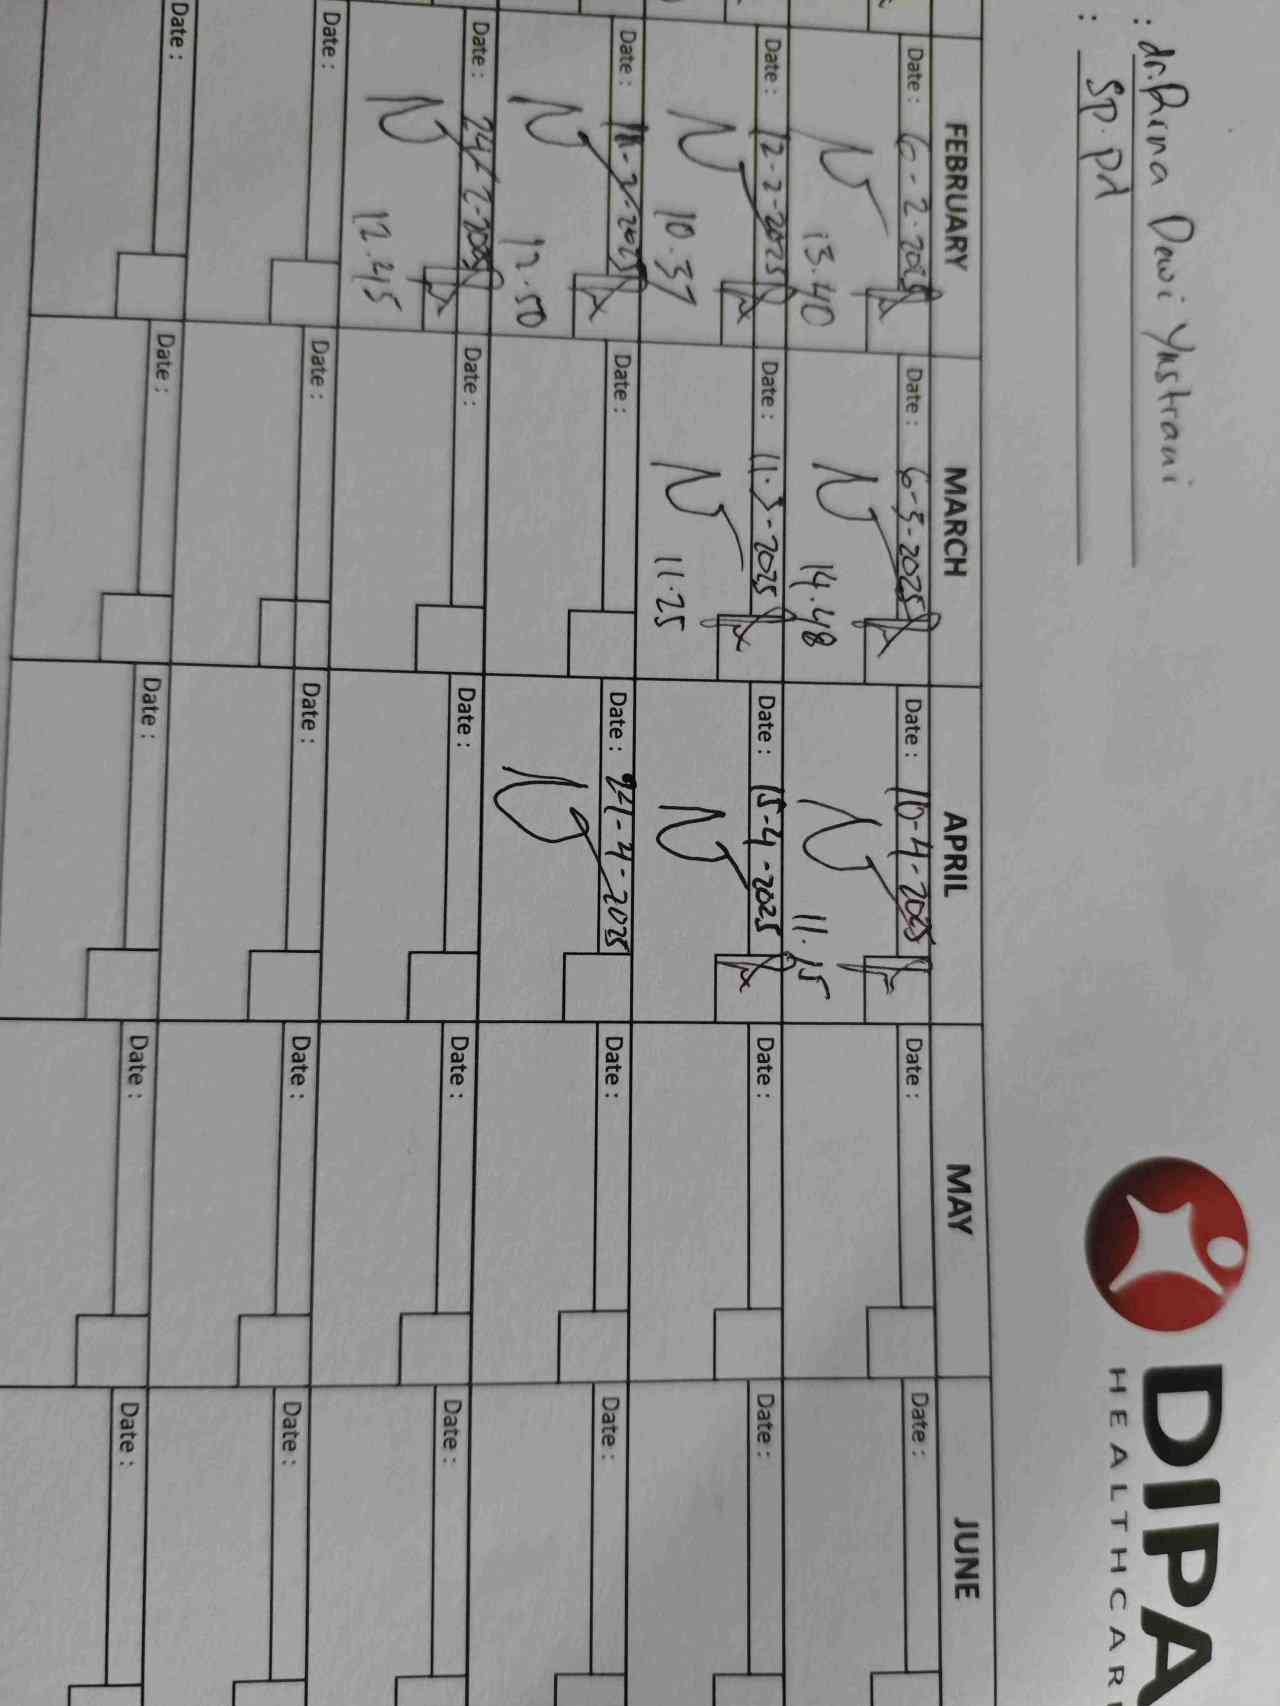 : dr. Rina Dewi Yustrami
: Sp. pd
DIPA
HEALTHCAR
FEBRUARY MARCH APRIL MAY JUNE
Date : 6-2-2025 Date : 6-3-2025 Date : 10-4-2025 Date : Date :
13.40 14.48 11.15
Date : 12-2-2025 Date : 11-3-2025 Date : 15-4-2025 Date : Date :
10.37 11.25
Date : 18-2-2025 Date : Date : 24-4-2025 Date : Date :
12.50
Date : 24-2-2025 Date : Date : Date : Date :
12.45
Date : Date : Date : Date : Date :
Date : Date : Date : Date : Date :